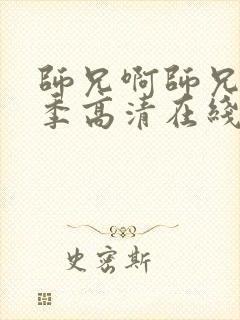 師兄啊師兄
季高清在綫
史密斯